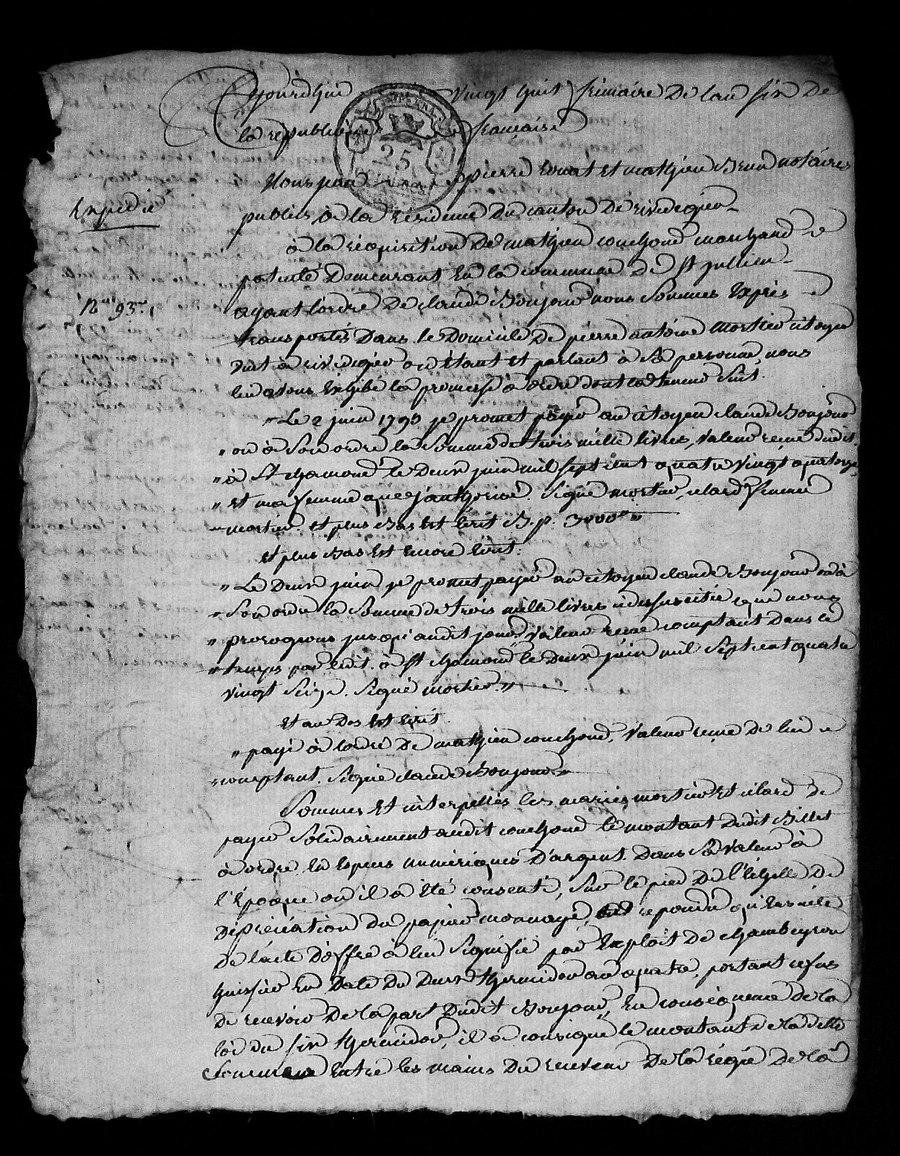 Aujourd'hui vingt huit frimaire de lan six de
la republique francaise
25
Nous pierre et mathieu notaires
publics a la Residence du canton de rivedegier
Expedié
a la réquisition de mathieu couchoud marchand
patenté demeurant en la commune de St jullien
ayant lordre de claude Boujour nous sommes Exprès
transportés dans le domicile de pierre antoine mortier citoyen
a rivedegier ou Etant et parlant a sa personne nous
lui avons Exhibé la promesse a ordre dont la teneur suit
" Le 2 juin 1795 je promet payer au citoyen claude Boujour
" ou a son ordre la somme de trois mille livres, valeur reçue dudit.
" a St chamond le deux juin mil sept cent quatre vingt quatorze
" et ma femme que j'authorise. Signé mortier, clard femme
" mortier. et plus bas est Ecrit B. p. 3000
et plus bas est encore Ecrit:
" Le deux juin je promet payer au citoyen claude Boujour ou a
" son ordre la somme de trois mille livres que nous
" prorogeons jusqu'audit jour valeur reçue comptant dans le
" temps par Edit. a St chamond le deux juin mil sept cent quatre
vingt seize. Signé mortier "
Et au dos Est Ecrit.
" payé a lordre de mathieu couchoud, valeur reçue de lui
comptant. Signé claude Boujour "
Sommes Et interpellés les mariés mortier et clard de
payer solidairement audit couchoud le montant dudit Billet
a ordre En Especes numeriques d'argent dans sa valeur a
l'Epoque ou il a Eté consenti, sur le pied de l'Echelle de
dépréciation du papier monnoye, a repondu qu'Ensuite
de lacte d'offre a lui signifié par Exploit de chambeyron
huissier En date du deux thermidor an quatre, portant refus
de recevoir de la part dudit Boujour, En conséquence de la
loi du six thermidor il a consigné le montant de la dette
Entre les mains du receveur de la régie de la